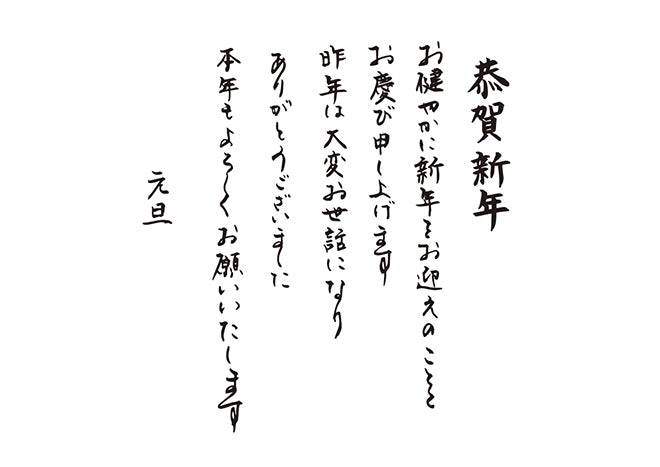 恭賀新年
お健やかに新年をお迎えのことと
お慶び申し上げます
昨年は大変お世話になり
ありがとうございました
本年もよろしくお願いいたします
元旦